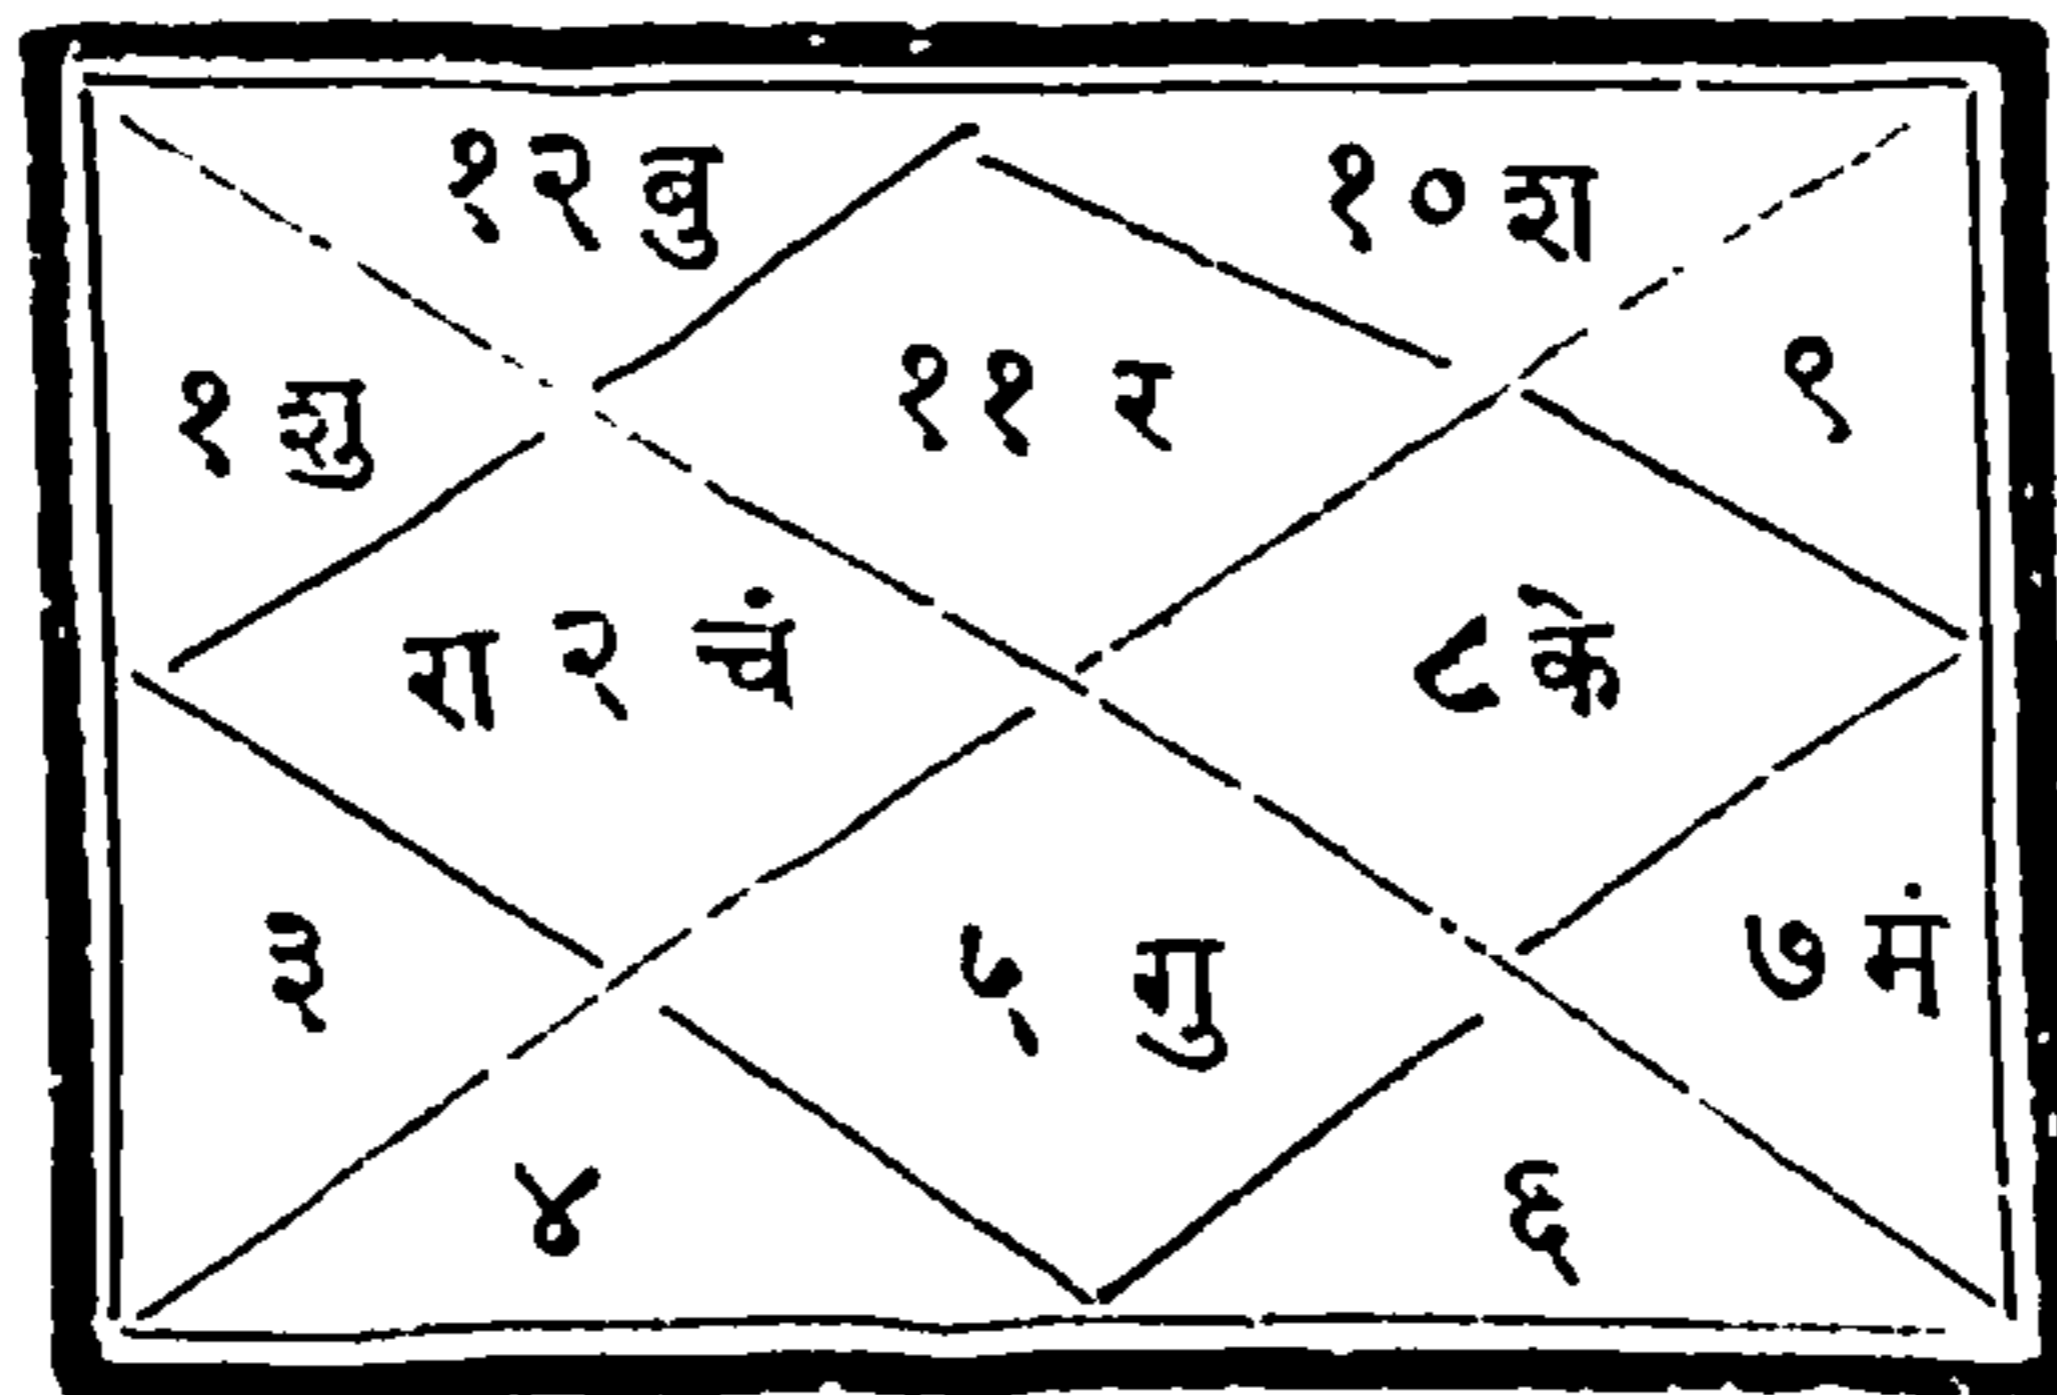 १२ बु
१० श
१ शु
११ र
९
रा २ चं
८ के
३
५ गु
७ मं
४
६